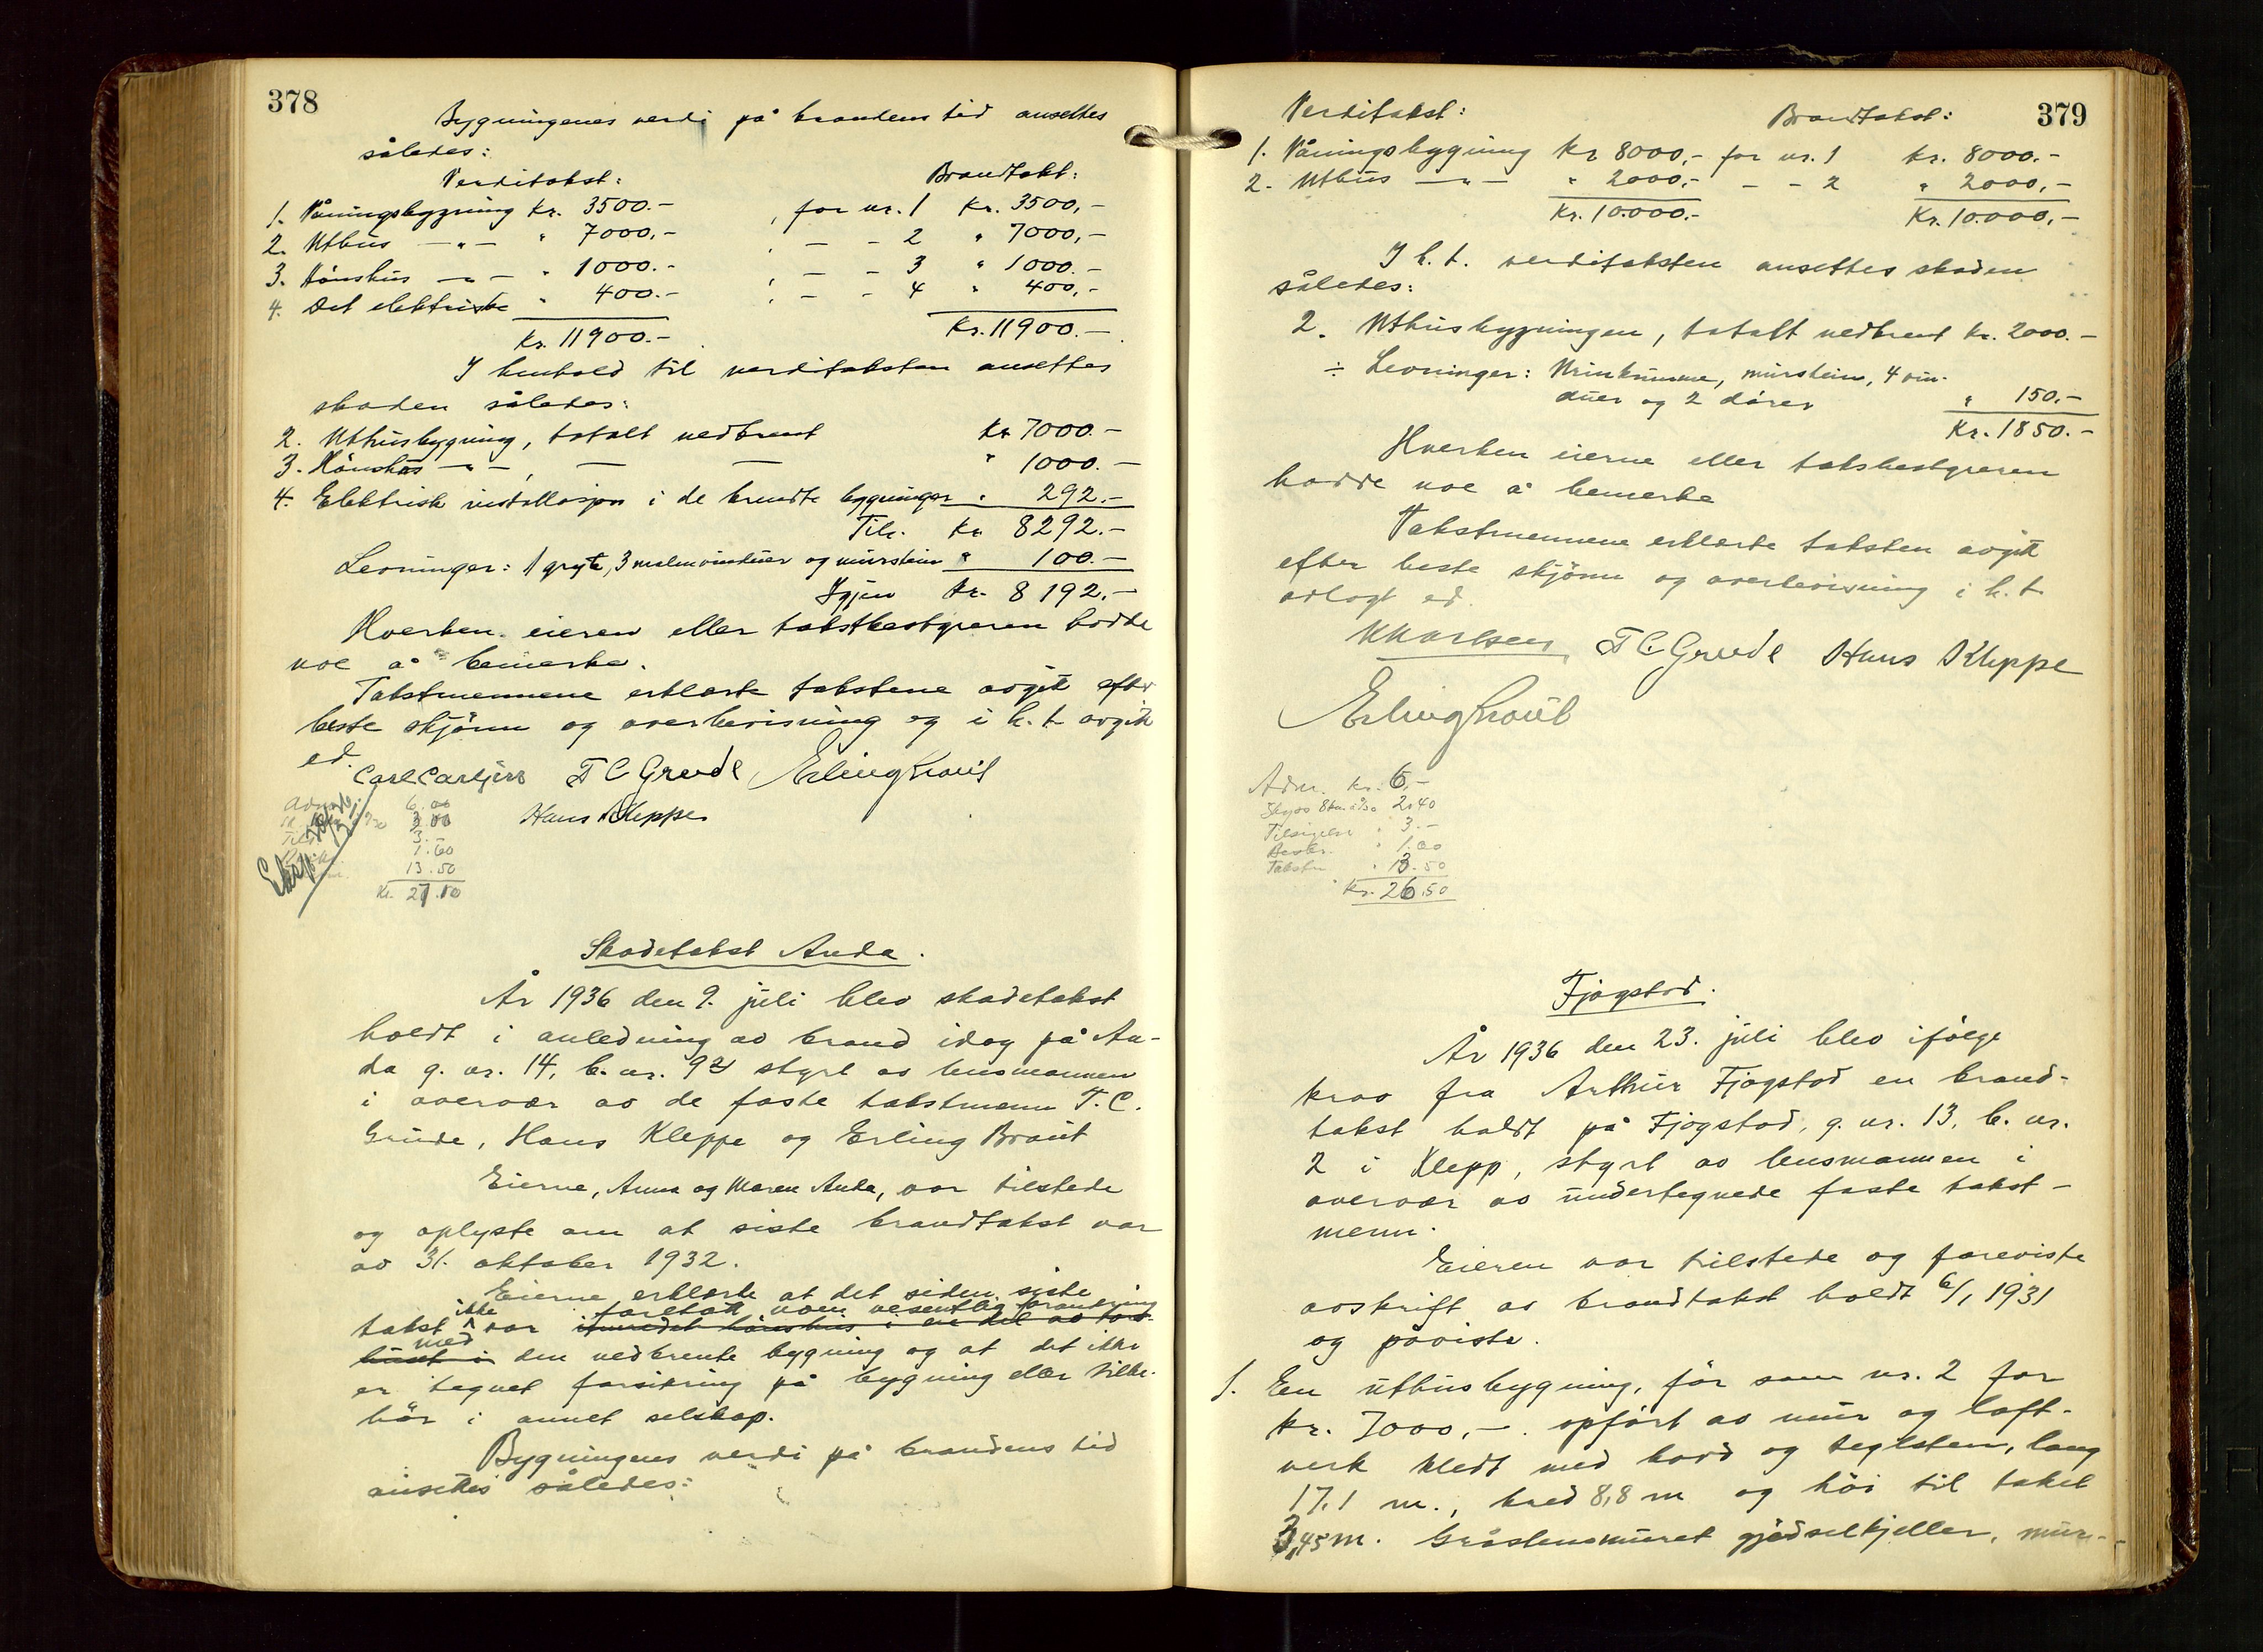 378
Bygningenes verdi på brandens tid ansettes
således:
Verditakst: Brandtakst:
1. Våningsbygning kr. 3500.- , for nr. 1 kr. 3500,-
2. Uthus —"— " 7000,- , — - 2 " 7000,-
3. Hönshus —"— " 1000.- , — - 3 " 1000.-
4. Det elektriske " 400.- , — - 4 " 400,-
Kr. 11900.- Kr. 11900.-
I henhold til verditaksten ansettes
skaden således:
2. Uthusbygning, totalt nedbrent kr 7000.-
3. Hönshus —"—, — — " 1000.-
4. Elektrisk installasjon i de brendte bygninger " 292.-
Tils. kr 8292.-
Levninger: 1 gryte, 3 malmvinduer og murstein " 100.-
Igjen kr. 8192.-
Hverken eieren eller takstbestyreren hadde
noe å bemerke.
Takstmennene erklærte takstene avgitt efter
beste skjönn og overbevisning og i h. t. avgitt
ed.
Carl Carlsen T C Grude Erling Braut
Hans Kleppe
6.00
3.-
1.60
13.50
Kr. 27.10
Skadetakst Anda.
År 1936 den 9. juli blev skadetakst
holdt i anledning av brand idag på An-
da g. nr. 14, b. nr. 92 styrt av lensmannen
i overvær av de faste takstmenn T. C.
Grude, Hans Kleppe og Erling Braut
Eierne, Anna og Maren Anda, var tilstede
og oplyste om at siste brandtakst var
av 31. oktober 1932.
Eierne erklærte at det siden siste
takst ikke var foretatt noen vesentlig forandring
med den nedbrente bygning og at det ikke
er tegnet forsikring på bygning eller tilbe-
hör i annet selskap.
Bygningens verdi på brandens tid
ansettes således:
379
Verditakst: Brandtakst:
1. Våningsbygning kr 8000,- for nr. 1 kr. 8000.-
2. Uthus —"— " 2000,- — - 2 " 2000,-
Kr. 10.000.- Kr. 10.000,-
I h. t. verditaksten ansettes skaden
således:
2. Uthusbygningen, totalt nedbrent kr. 2000.-
÷ Levninger: Urinkumme, murstein, 4 vin-
duer og 2 dörer " 150.-
Kr. 1850.-
Hverken eierne eller takstbestyreren
hadde noe å bemerke
Takstmennene erklærte taksten avgitt
efter beste skjönn og overbevisning i h. t.
avlagt ed.
T C. Grude Hans Kleppe
Erling Braut
Adm. kr. 6,-
Skyss 8 km à /30 2.40
Tilsigelse " 3.-
13.50
Kr. 26.50
Fjogstad.
År 1936 den 23. juli blev ifölge
krav fra Arthur Fjogstad en brand-
takst holdt på Fjogstad, g. nr. 13, b. nr.
2 i Klepp, styrt av lensmannen i
overvær av undertegnede faste takst-
menn.
Eieren var tilstede og foreviste
avskrift av brandtakst holdt 6/1 1931
og påviste.
1. En uthusbygning, för som nr. 2 for
kr. 7000,-. opfört av mur og loft-
verk kledt med bord og teglsten, lang
17,1 m., bred 8,8 m og höi til taket
3,45 m. Gråstensmuret gjödselkjeller, mur-